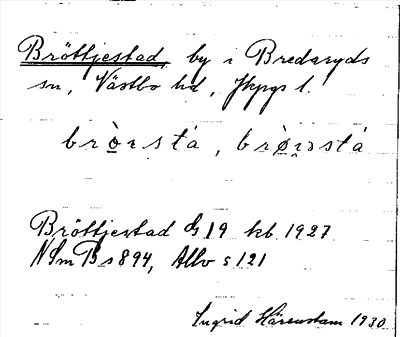 Bröttjestad, by i Bredaryds
sn, Västbo hd, Jkpgs l.
bròṣstá, brø̀ṣstá
Bröttjestad G 19 kb 1927
NSmB s 894, Allv s 121
Ingrid Härenstam 1930